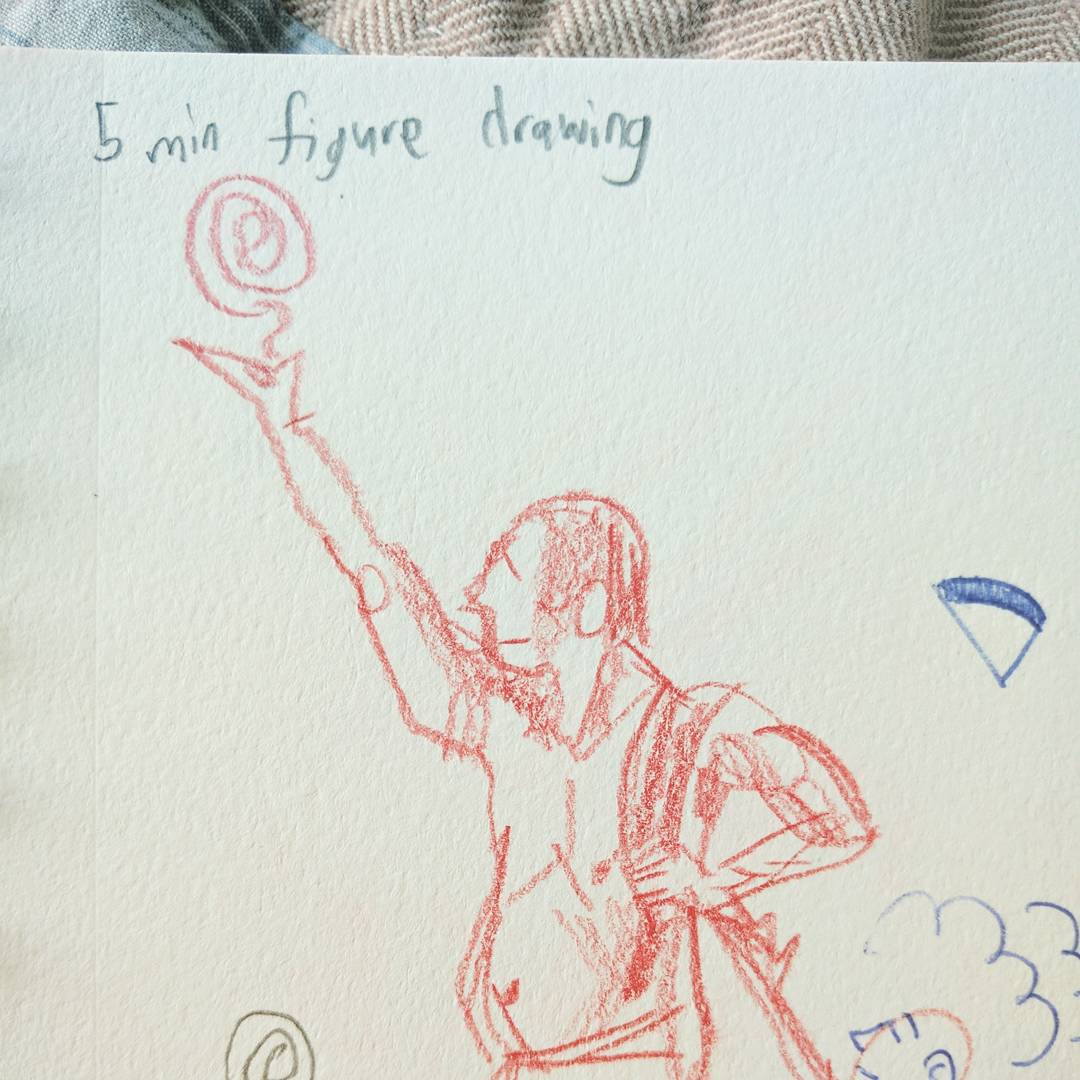 5 min figure drawing